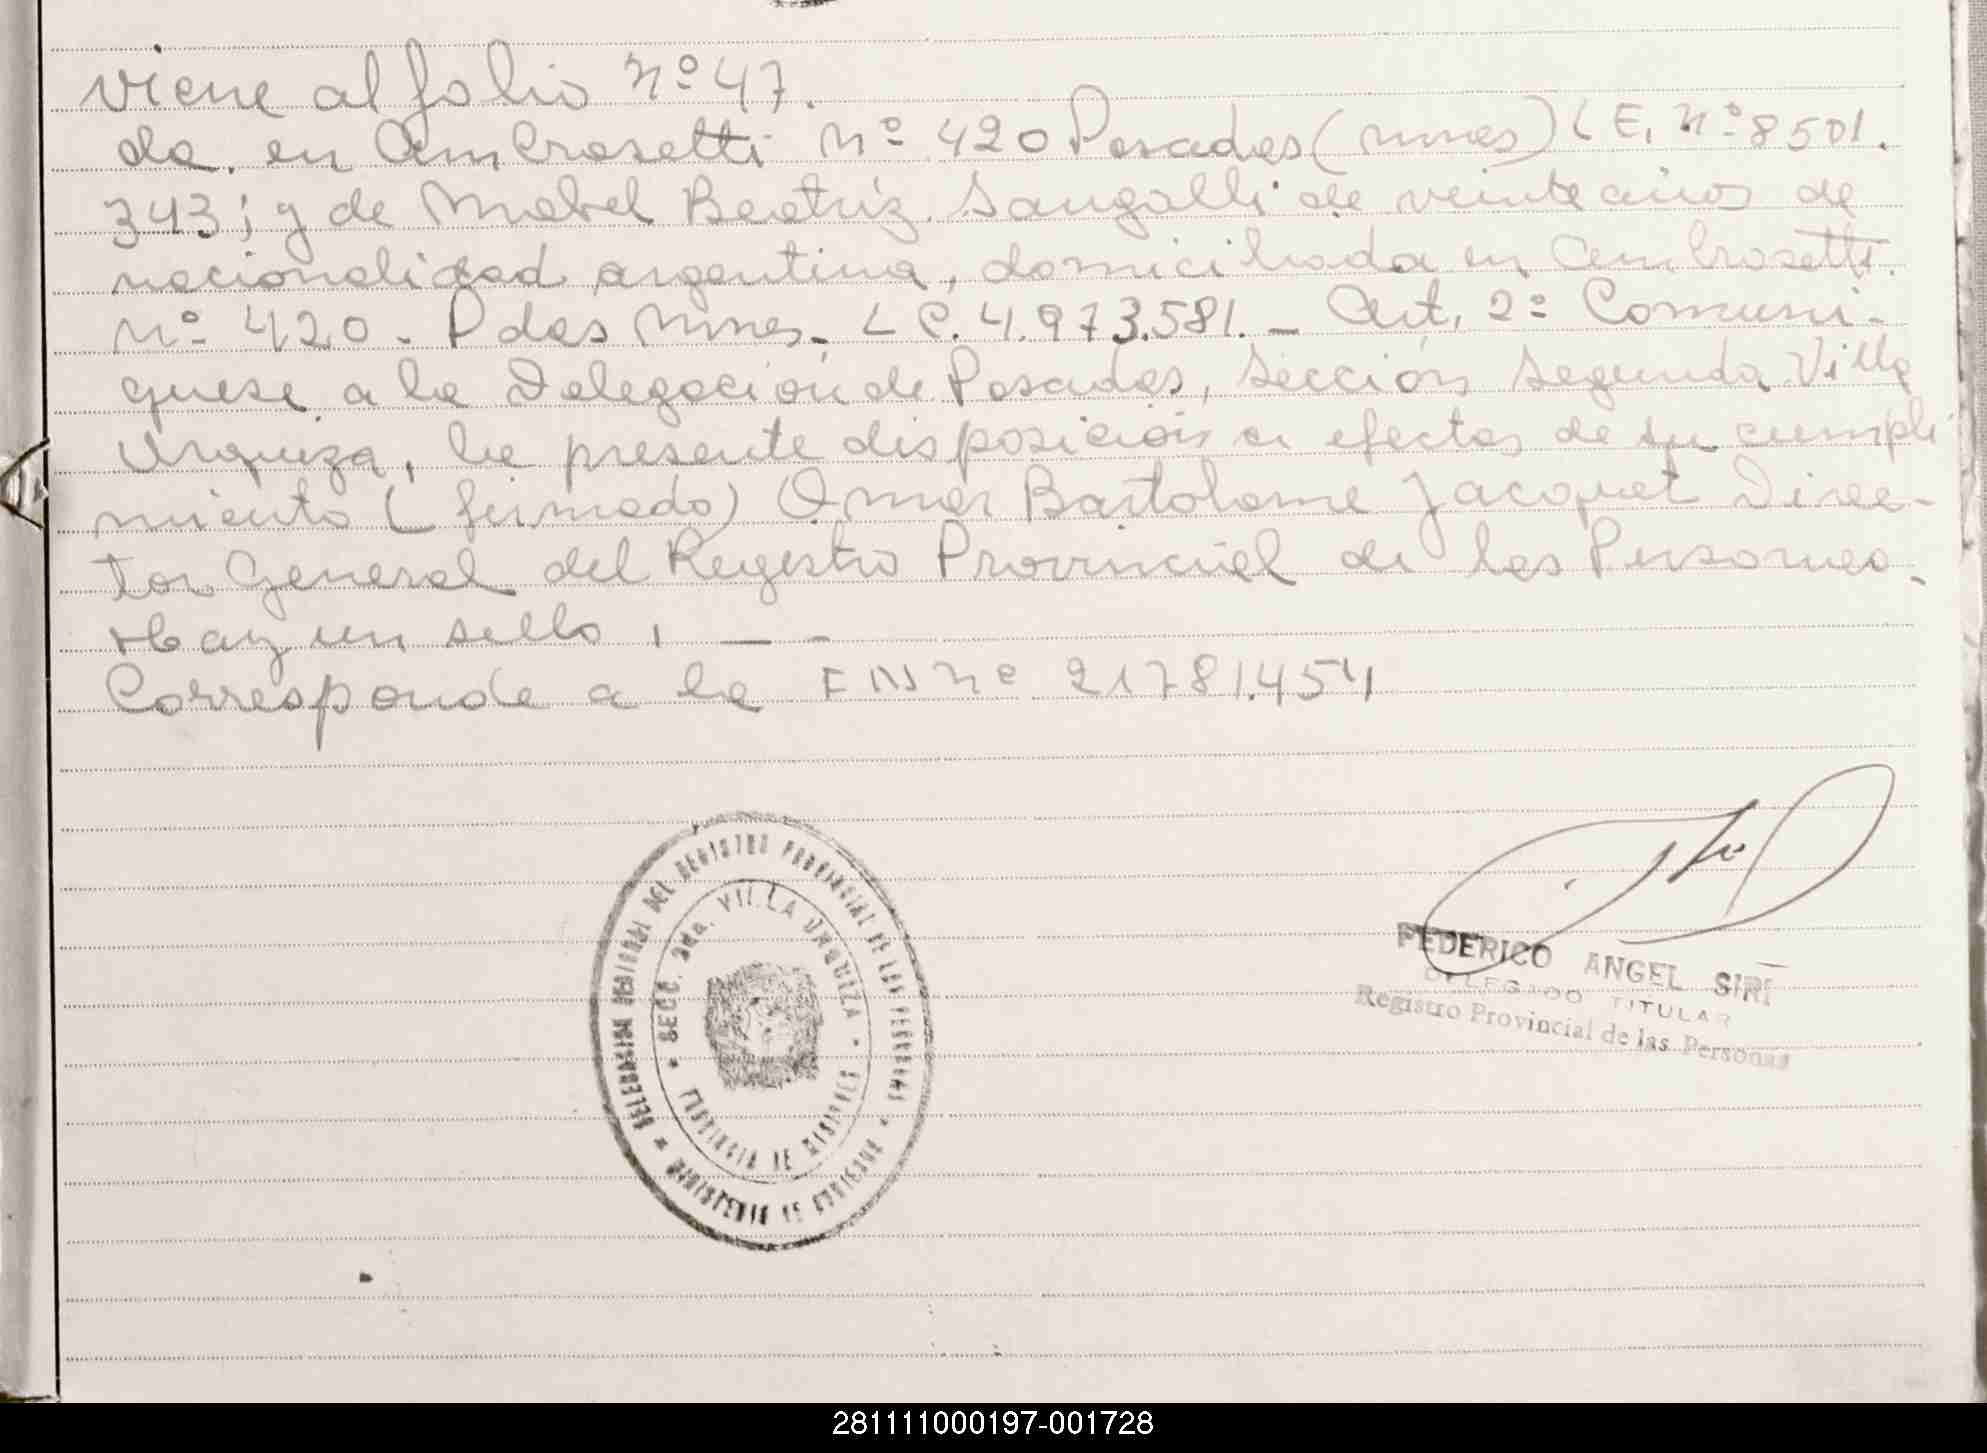 viene al folio nº 47.
da. en Ambrosetti nº 420 Posadas (mnes) L E. nº 8501.
343; y de Mabel Beatriz Sangalli de veinte años de
nacionalidad argentina, domiciliada en Ambrosetti
nº 420. Pdas Mnes. L C. 4.973.581. - Art. 2º Comuni-
quese a la Delegación de Posadas, Sección Segunda Villa
Urquiza, la presente disposición a efectos de su cumpli
miento (firmado) Omar Bartolome Jacquet Direc-
tor General del Registro Provincial de las Personas.
Hay un sello. - -
Corresponde a la nº 21781.454
DELEGACION REGIONAL DEL REGISTRO PROVINCIAL DE LAS PERSONAS
MINISTERIO DE GOBIERNO
SECC. 2da. VILLA URQUIZA
PROVINCIA DE MISIONES
FEDERICO ANGEL SIRI
DELEGADO TITULAR
Registro Provincial de las Personas
281111000197-001728